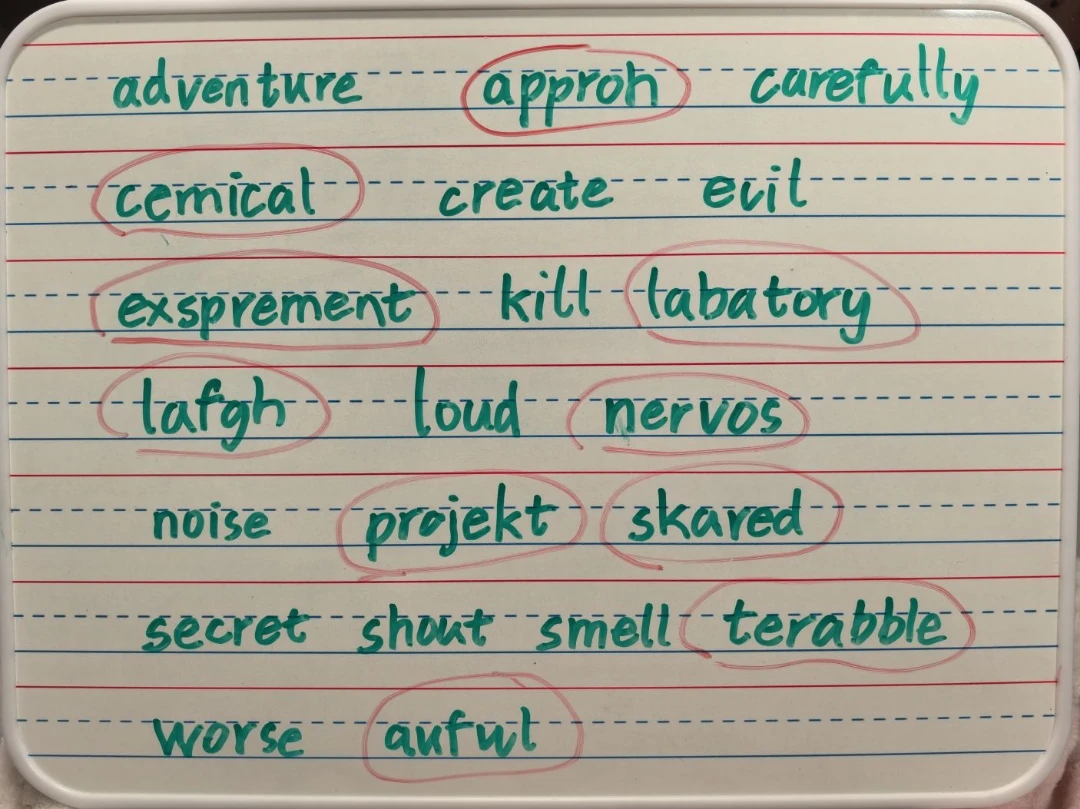 adventure approh carefully
cemical create evil
exsprement kill labatory
lafgh loud nervos
noise projekt skared
secret shout smell terabble
worse auful